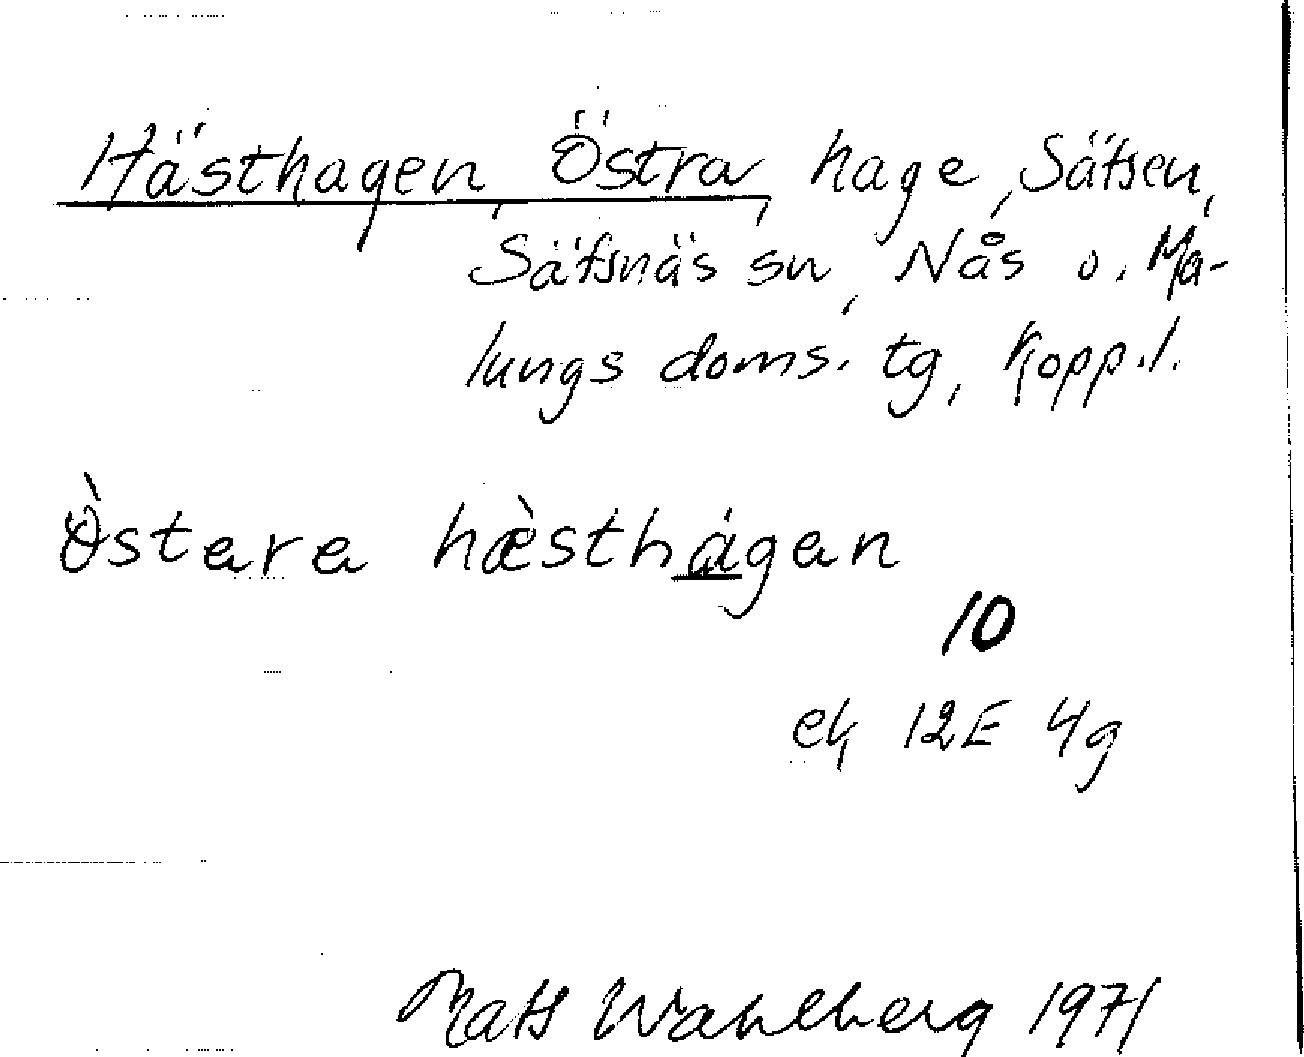 Hästhagen, Östra, hage, Sätsen,
Säfsnäs sn, Nås o. Ma-
lungs doms. tg, Kopp.l.
Östara hæ̀sthágan
10
ek 12E 4g
Mats Wahlberg 1971